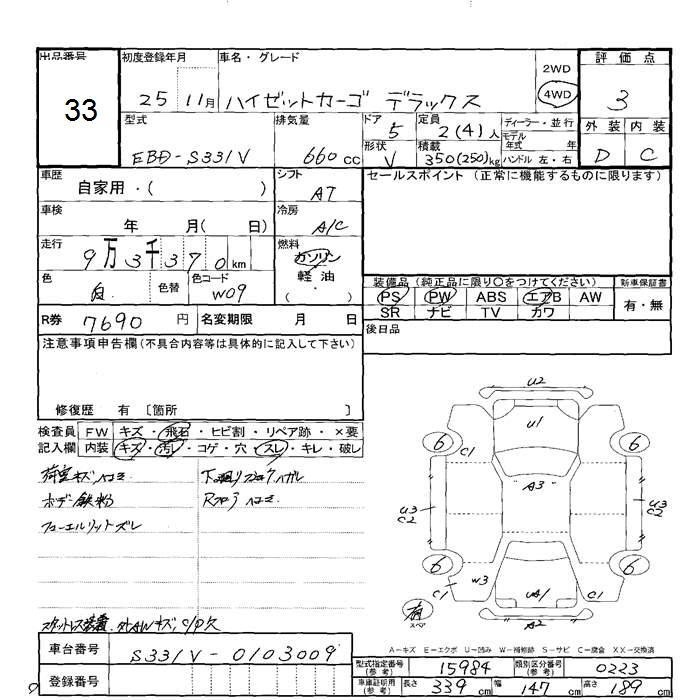 出品番号 初度登録年月 車名・グレード 2WD 評価点
33 25 11月 ハイゼットカーゴ デラックス 4WD 3
型式 排気量 ドア 5 定員 2(4)人 ディーラー・並行 外装 内装
EBD-S331V 660cc 形状 V 積載 350(250)kg モデル年式 年 ハンドル 左・右 D C
車歴 自家用・( ) シフト AT セールスポイント (正常に機能するものに限ります)
車検 年 月( 日) 冷房 A/C
走行 9万3千370km 燃料 ガソリン・軽油・( )
色 白 色替 色コード W09 装備品(純正品に限り〇をつけてください) 新車保証書
PS PW ABS エアB AW 有・無
SR ナビ TV カワ
R券 7690円 名変期限 月 日 後日品
注意事項申告欄(不具合内容等は具体的に記入して下さい)
修復歴 有 〔箇所 〕
検査員 FW キズ・飛石・ヒビ割・リペア跡・×要
記入欄 内装 キズ・汚レ・コゲ・穴・スレ・キレ・破レ
荷室キズ ヘコミ 下廻り
ボデー鉄粉 Rフロア ヘコミ
フューエルリットズレ
U2
U1
6 C1 6
A3
U3 C2 U3 C2
6 6
W3
C1 UA1 C1
有 スペア A2
A-キズ E-エクボ U-凹み W-補修跡 S-サビ C-腐食 XX-交換済
車台番号 S331V-0103009
登録番号
型式指定番号(参考) 15984 類別区分番号(参考) 0223
車庫証明用(参考) 長さ 339cm 幅 147cm 高さ 189cm